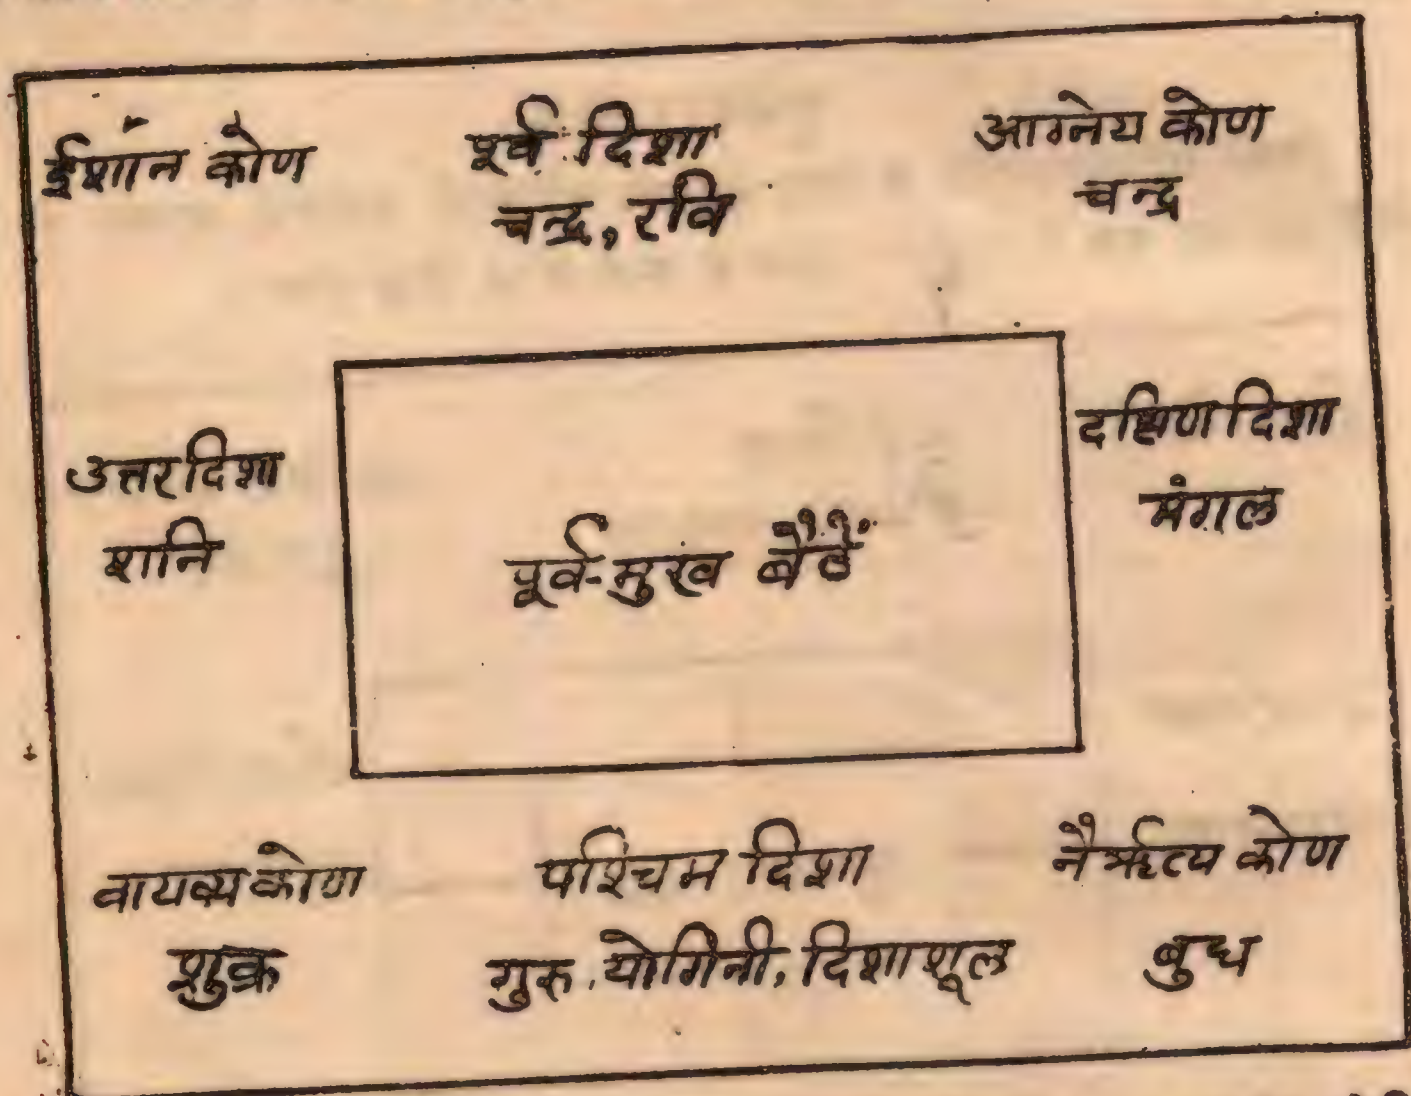 ईशान कोण
पूर्व दिशा
चन्द्र, रवि
आग्नेय कोण
चन्द्र
उत्तर दिशा
शनि
पूर्व-मुख बैठें
दक्षिण दिशा
मंगल
वायव्य कोण
शुक्र
पश्चिम दिशा
गुरु, योगिनी, दिशाशूल
नैर्ऋत्य कोण
बुध